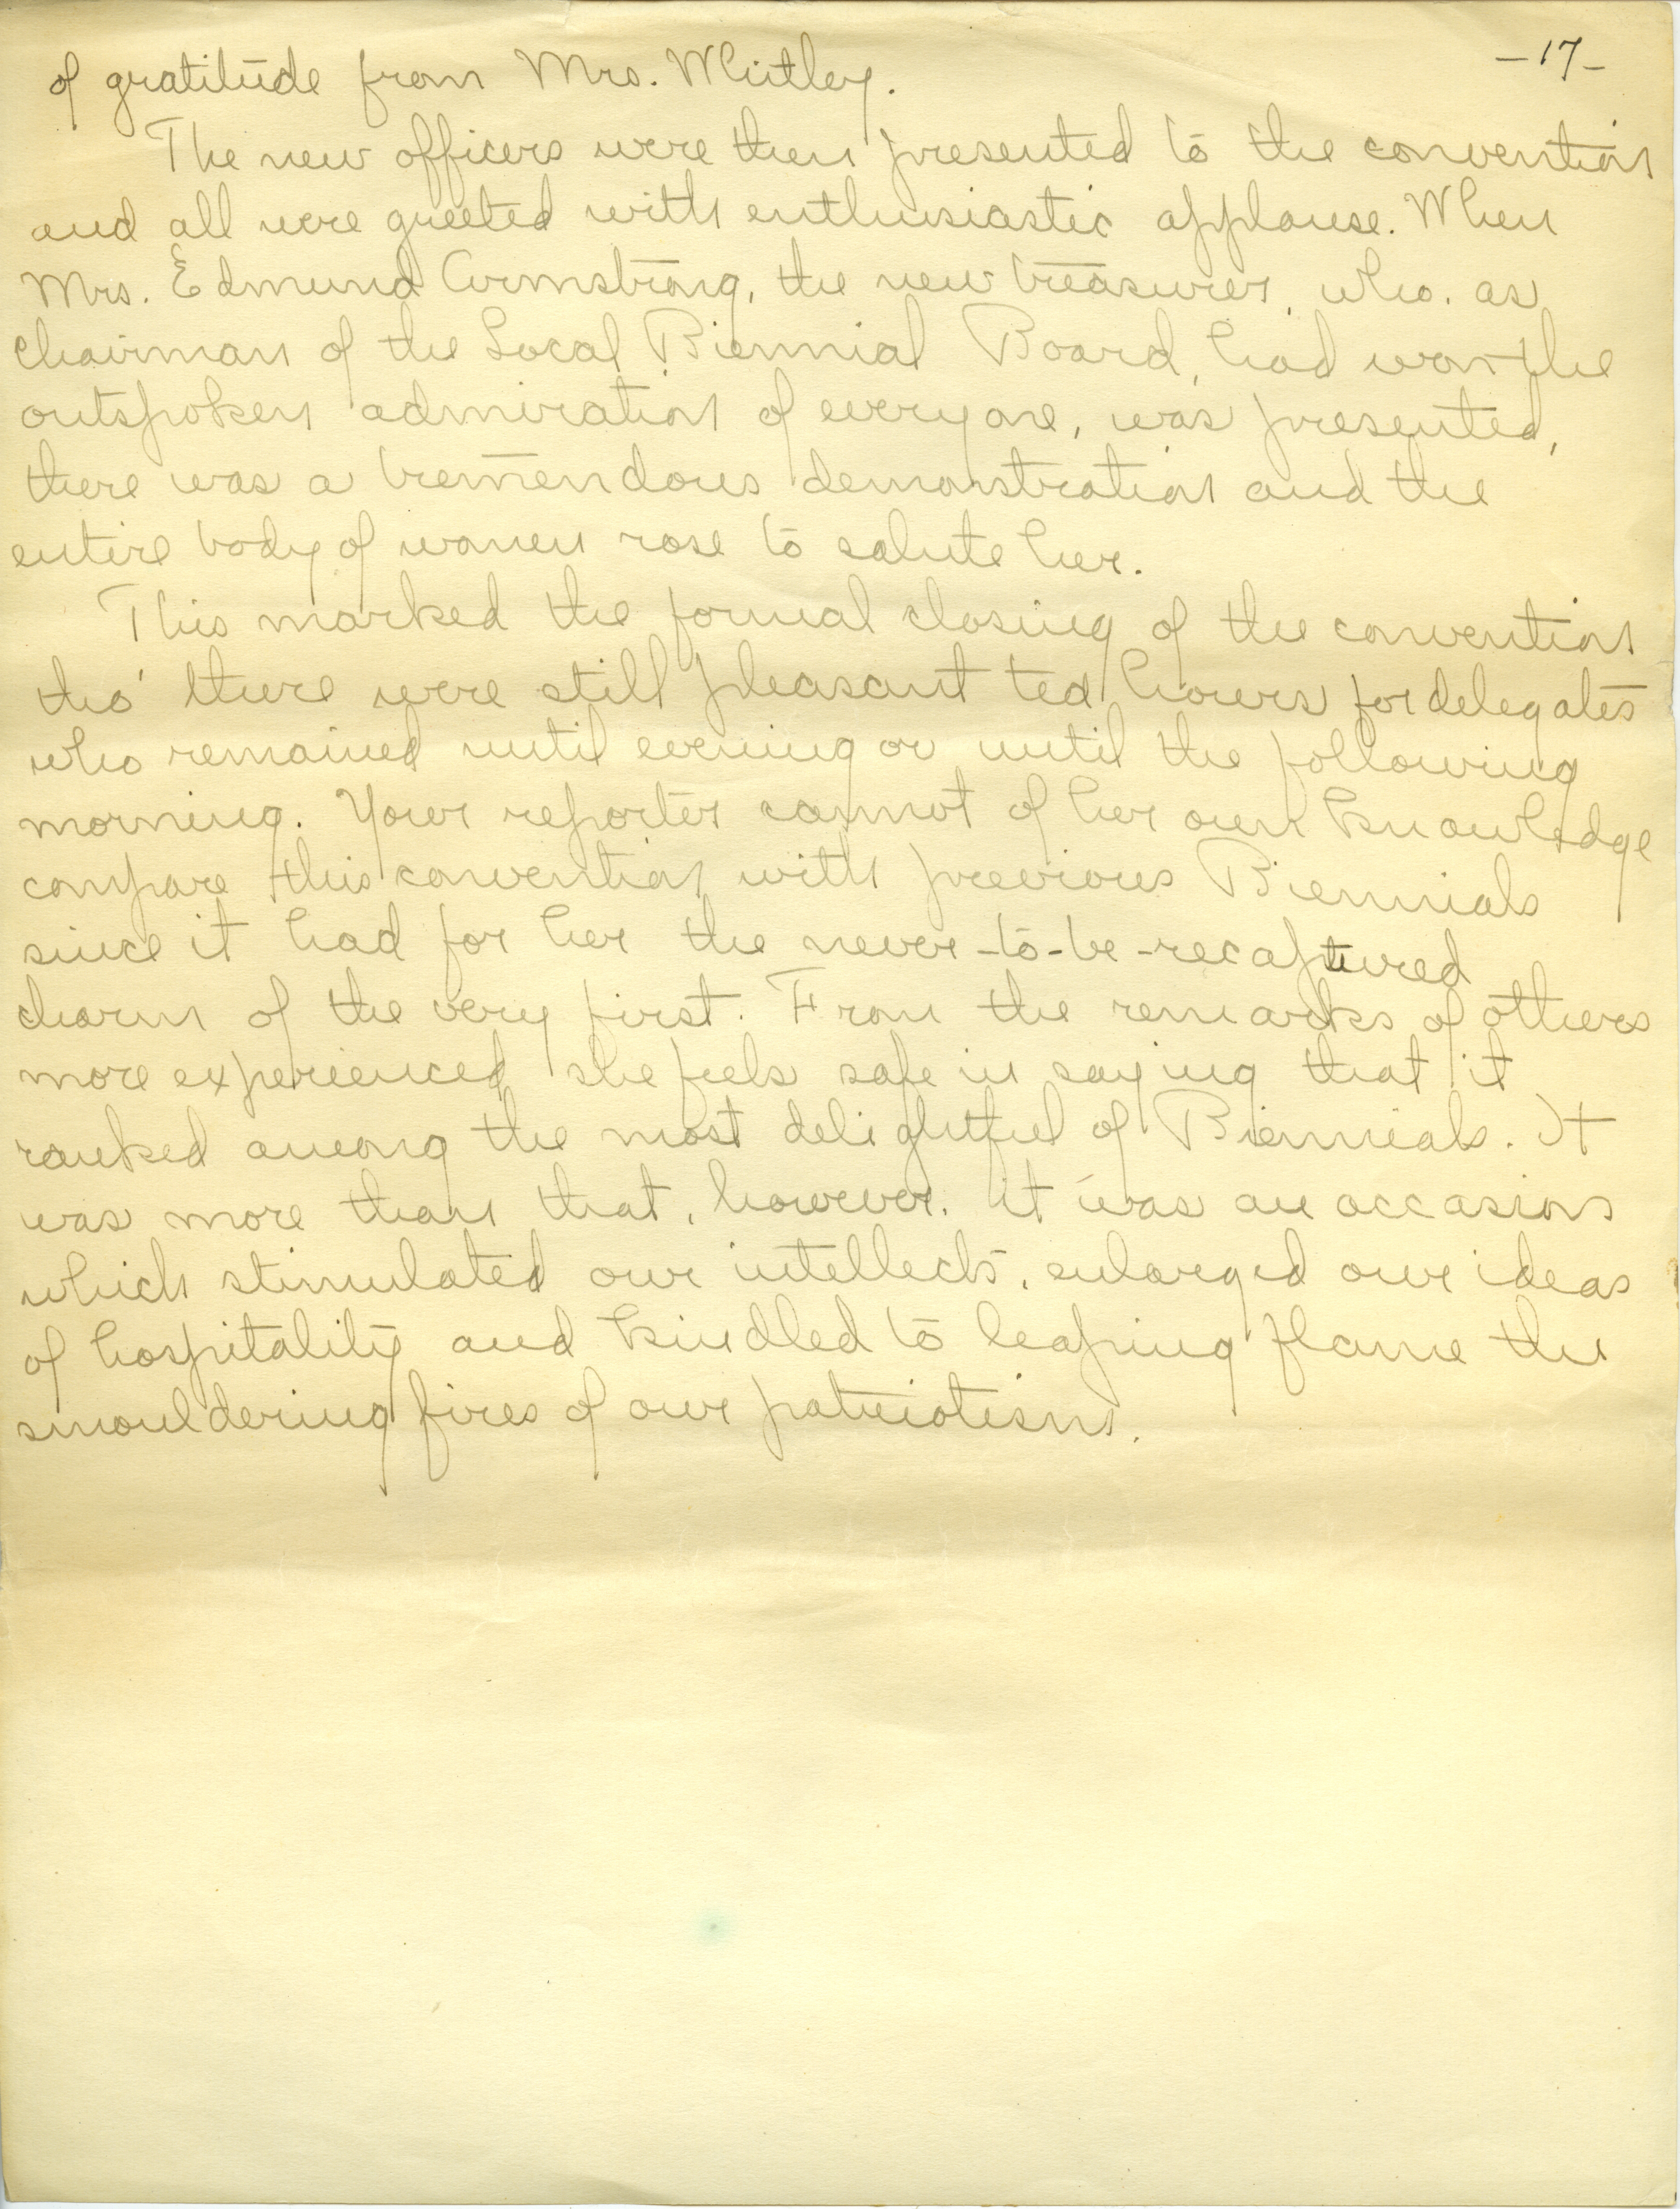 -17-
of gratitude from Mrs. Whitley.
The new officers were then presented to the convention
and all were greeted with enthusiastic applause. When
Mrs. Edmund Armstrong, the new treasurer, who, as
chairman of the Local Biennial Board, had won the
outspoken admiration of everyone, was presented,
there was a tremendous demonstration and the
entire body of women rose to salute her.
This marked the formal closing of the convention
tho' there were still pleasant tea hours for delegates
who remained until evening or until the following
morning. Your reporter cannot of her own knowledge
compare this convention with previous Biennials
since it had for her the never-to-be-recaptured
charm of the very first. From the remarks of others
more experienced she feels safe in saying that it
ranked among the most delightful of Biennials. It
was more than that, however. It was an occasion
which stimulated our intellects, enlarged our ideas
of hospitality and kindled to leaping flame the
smouldering fires of our patriotism.